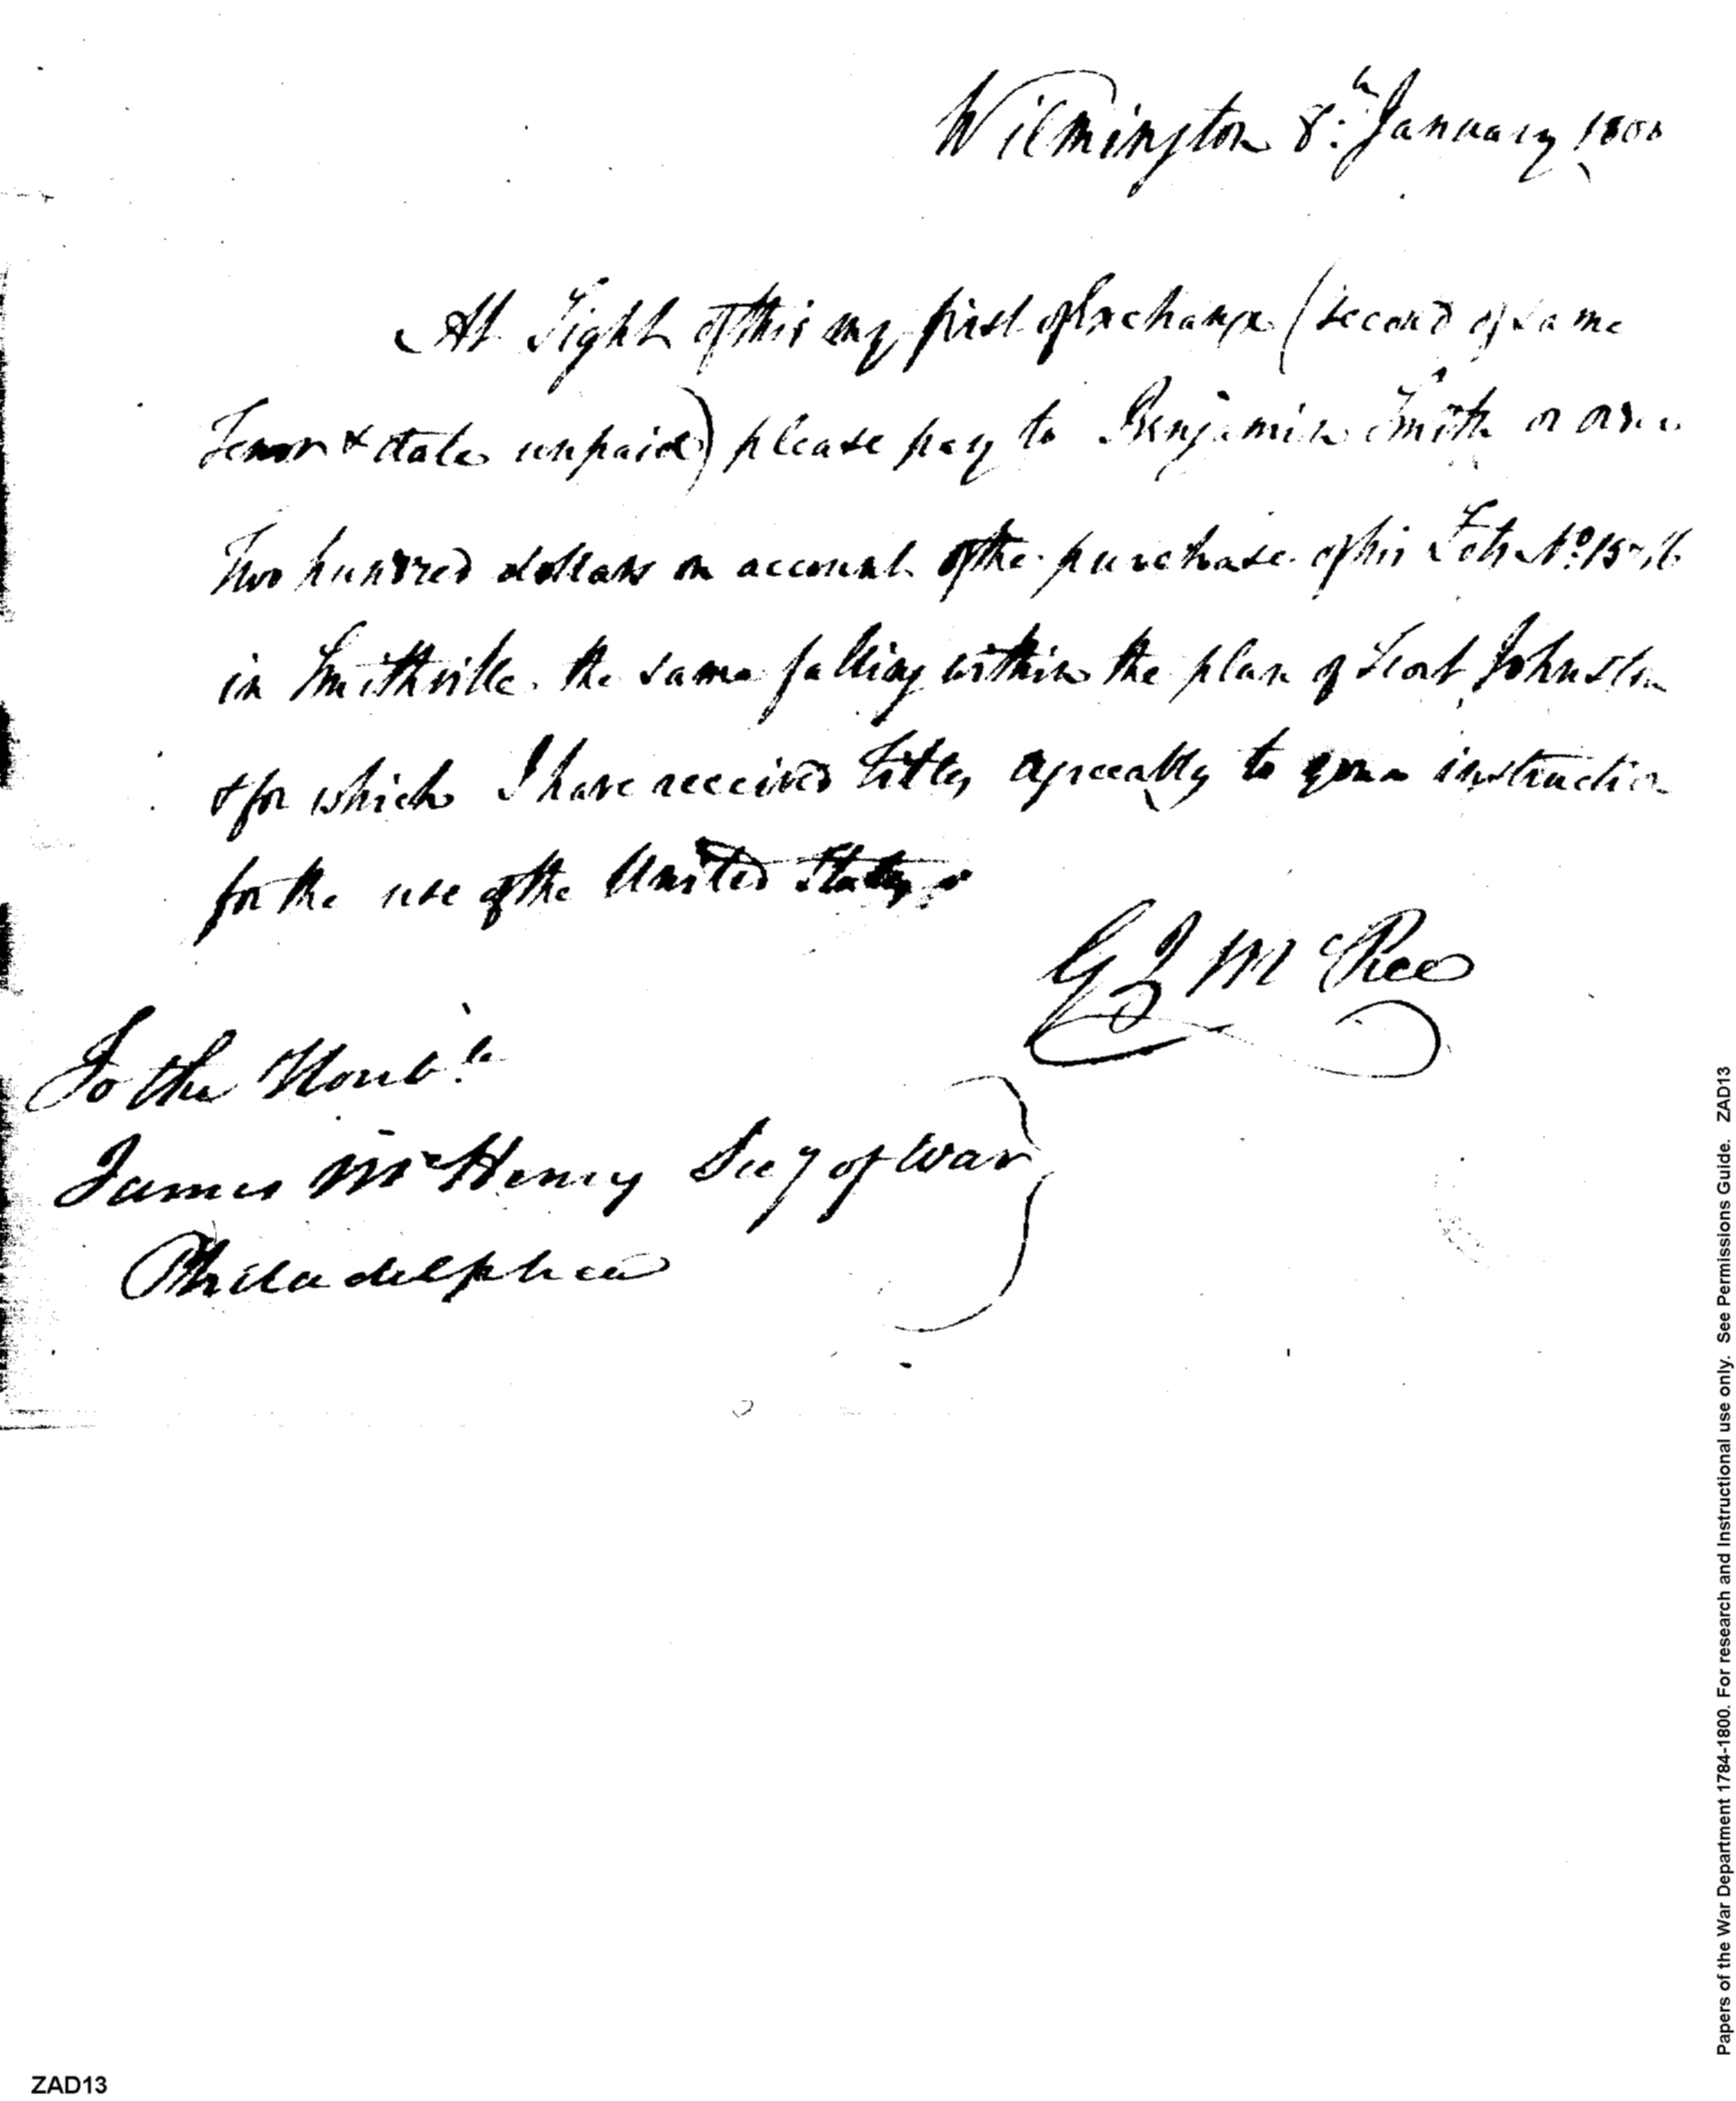 Wilmington 8.th January 1800
At Sight of this my first of Exchange (second of same
Tenor & date unpaid) please pay to Benjamin Smith or order
Two hundred dollars on account of the purchase of his Lots No. 15 & 16
in Smithville the same falling within the plan of Fort Johnston
& for which I have received titles agreeably to your instruction
for the use of the United States
G J McRee
To the Honb.le
James McHenry Secy of War
Philadelphia
ZAD13
Papers of the War Department 1784-1800. For research and Instructional use only. See Permissions Guide. ZAD13